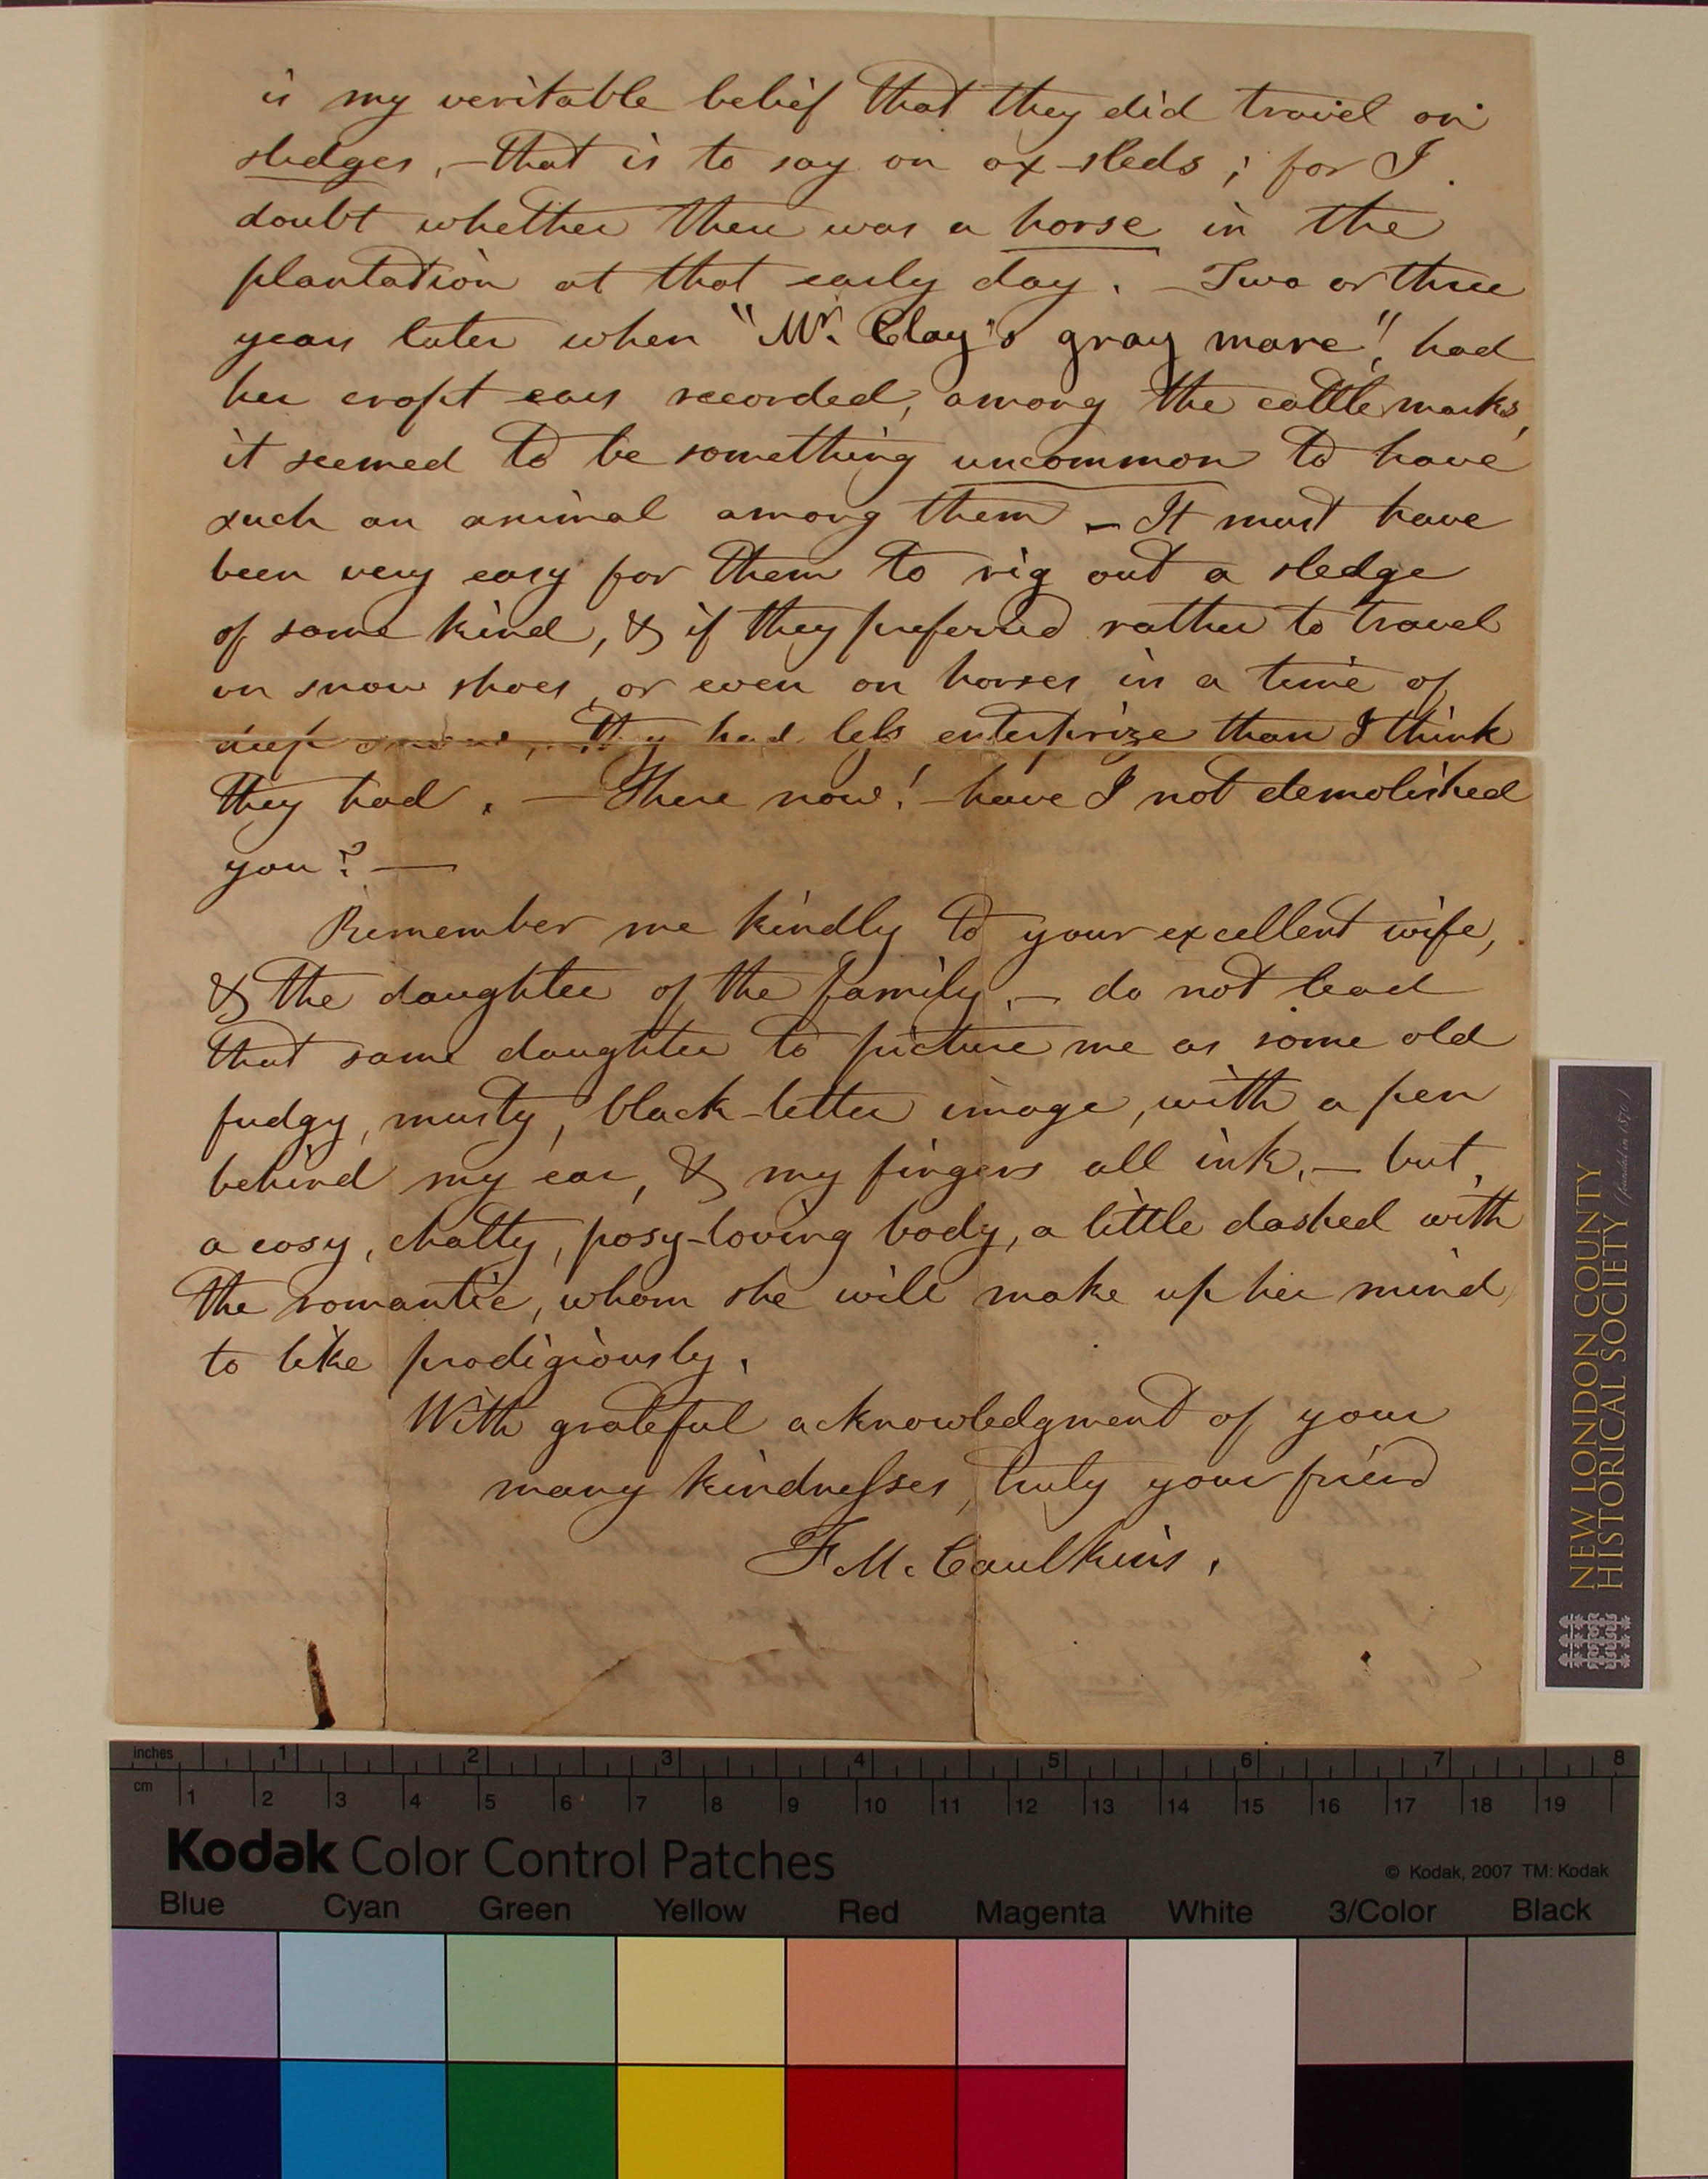 is my veritable belief that they did travel on
sledges, – that is to say on ox-sleds; for I
doubt whether there was a horse in the
plantation at that early day. – Two or three
years later when "Mr. Clay's gray mare", had
her cropt ears recorded, among the cattle marks,
it seemed to be something uncommon to have
such an animal among them – It must have
been very easy for them to rig out a sledge
of some kind, & if they preferred rather to travel
on snow shoes, or even on horses in a time of
deep snow, they had less enterprize than I think
they had. — There now! – have I not demolished
you? —
Remember me kindly to your excellent wife,
& the daughter of the family, – do not lead
that same daughter to picture me as some old
fudgy, musty, black-letter image, with a pen
behind my ear, & my fingers all ink, – but,
a cosy, chatty, posy-loving body, a little dashed with
the romantic, whom she will make up her mind
to like prodigiously.
With grateful acknowledgment of your
many kindnesses, truly your friend
F. M. Caulkins.
NEW LONDON COUNTY
HISTORICAL SOCIETY (founded in 1870)
inches 1 2 3 4 5 6 7 8
cm 1 2 3 4 5 6 7 8 9 10 11 12 13 14 15 16 17 18 19
Kodak Color Control Patches
© Kodak, 2007 TM: Kodak
Blue Cyan Green Yellow Red Magenta White 3/Color Black